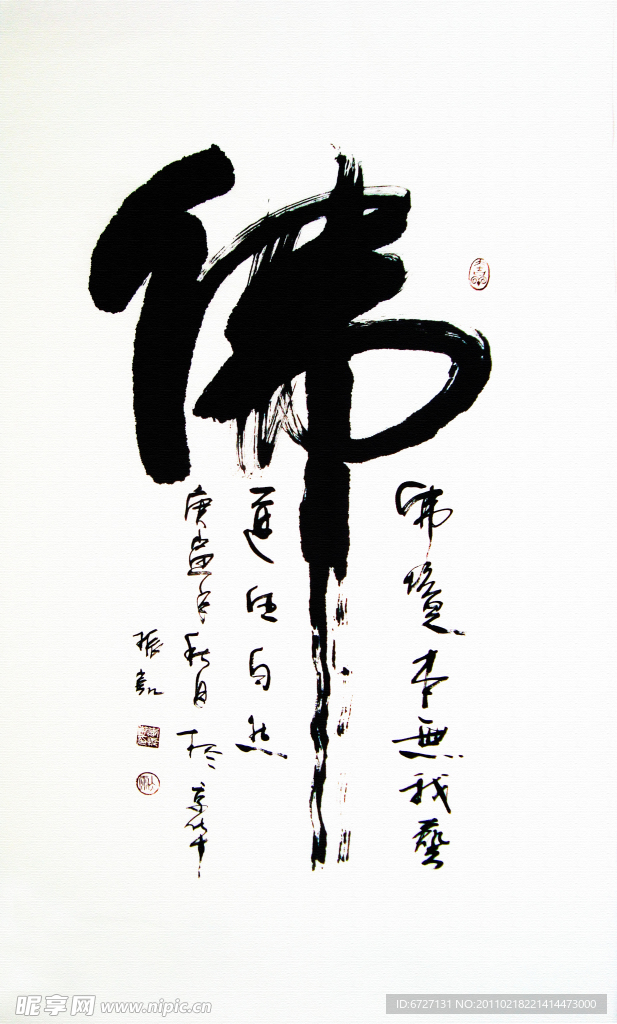 佛
佛境本無我藝
道法自然
庚寅年秋月於京华
振
昵享网 www.nipic.cn
ID:6727131 NO:20110218221414473000